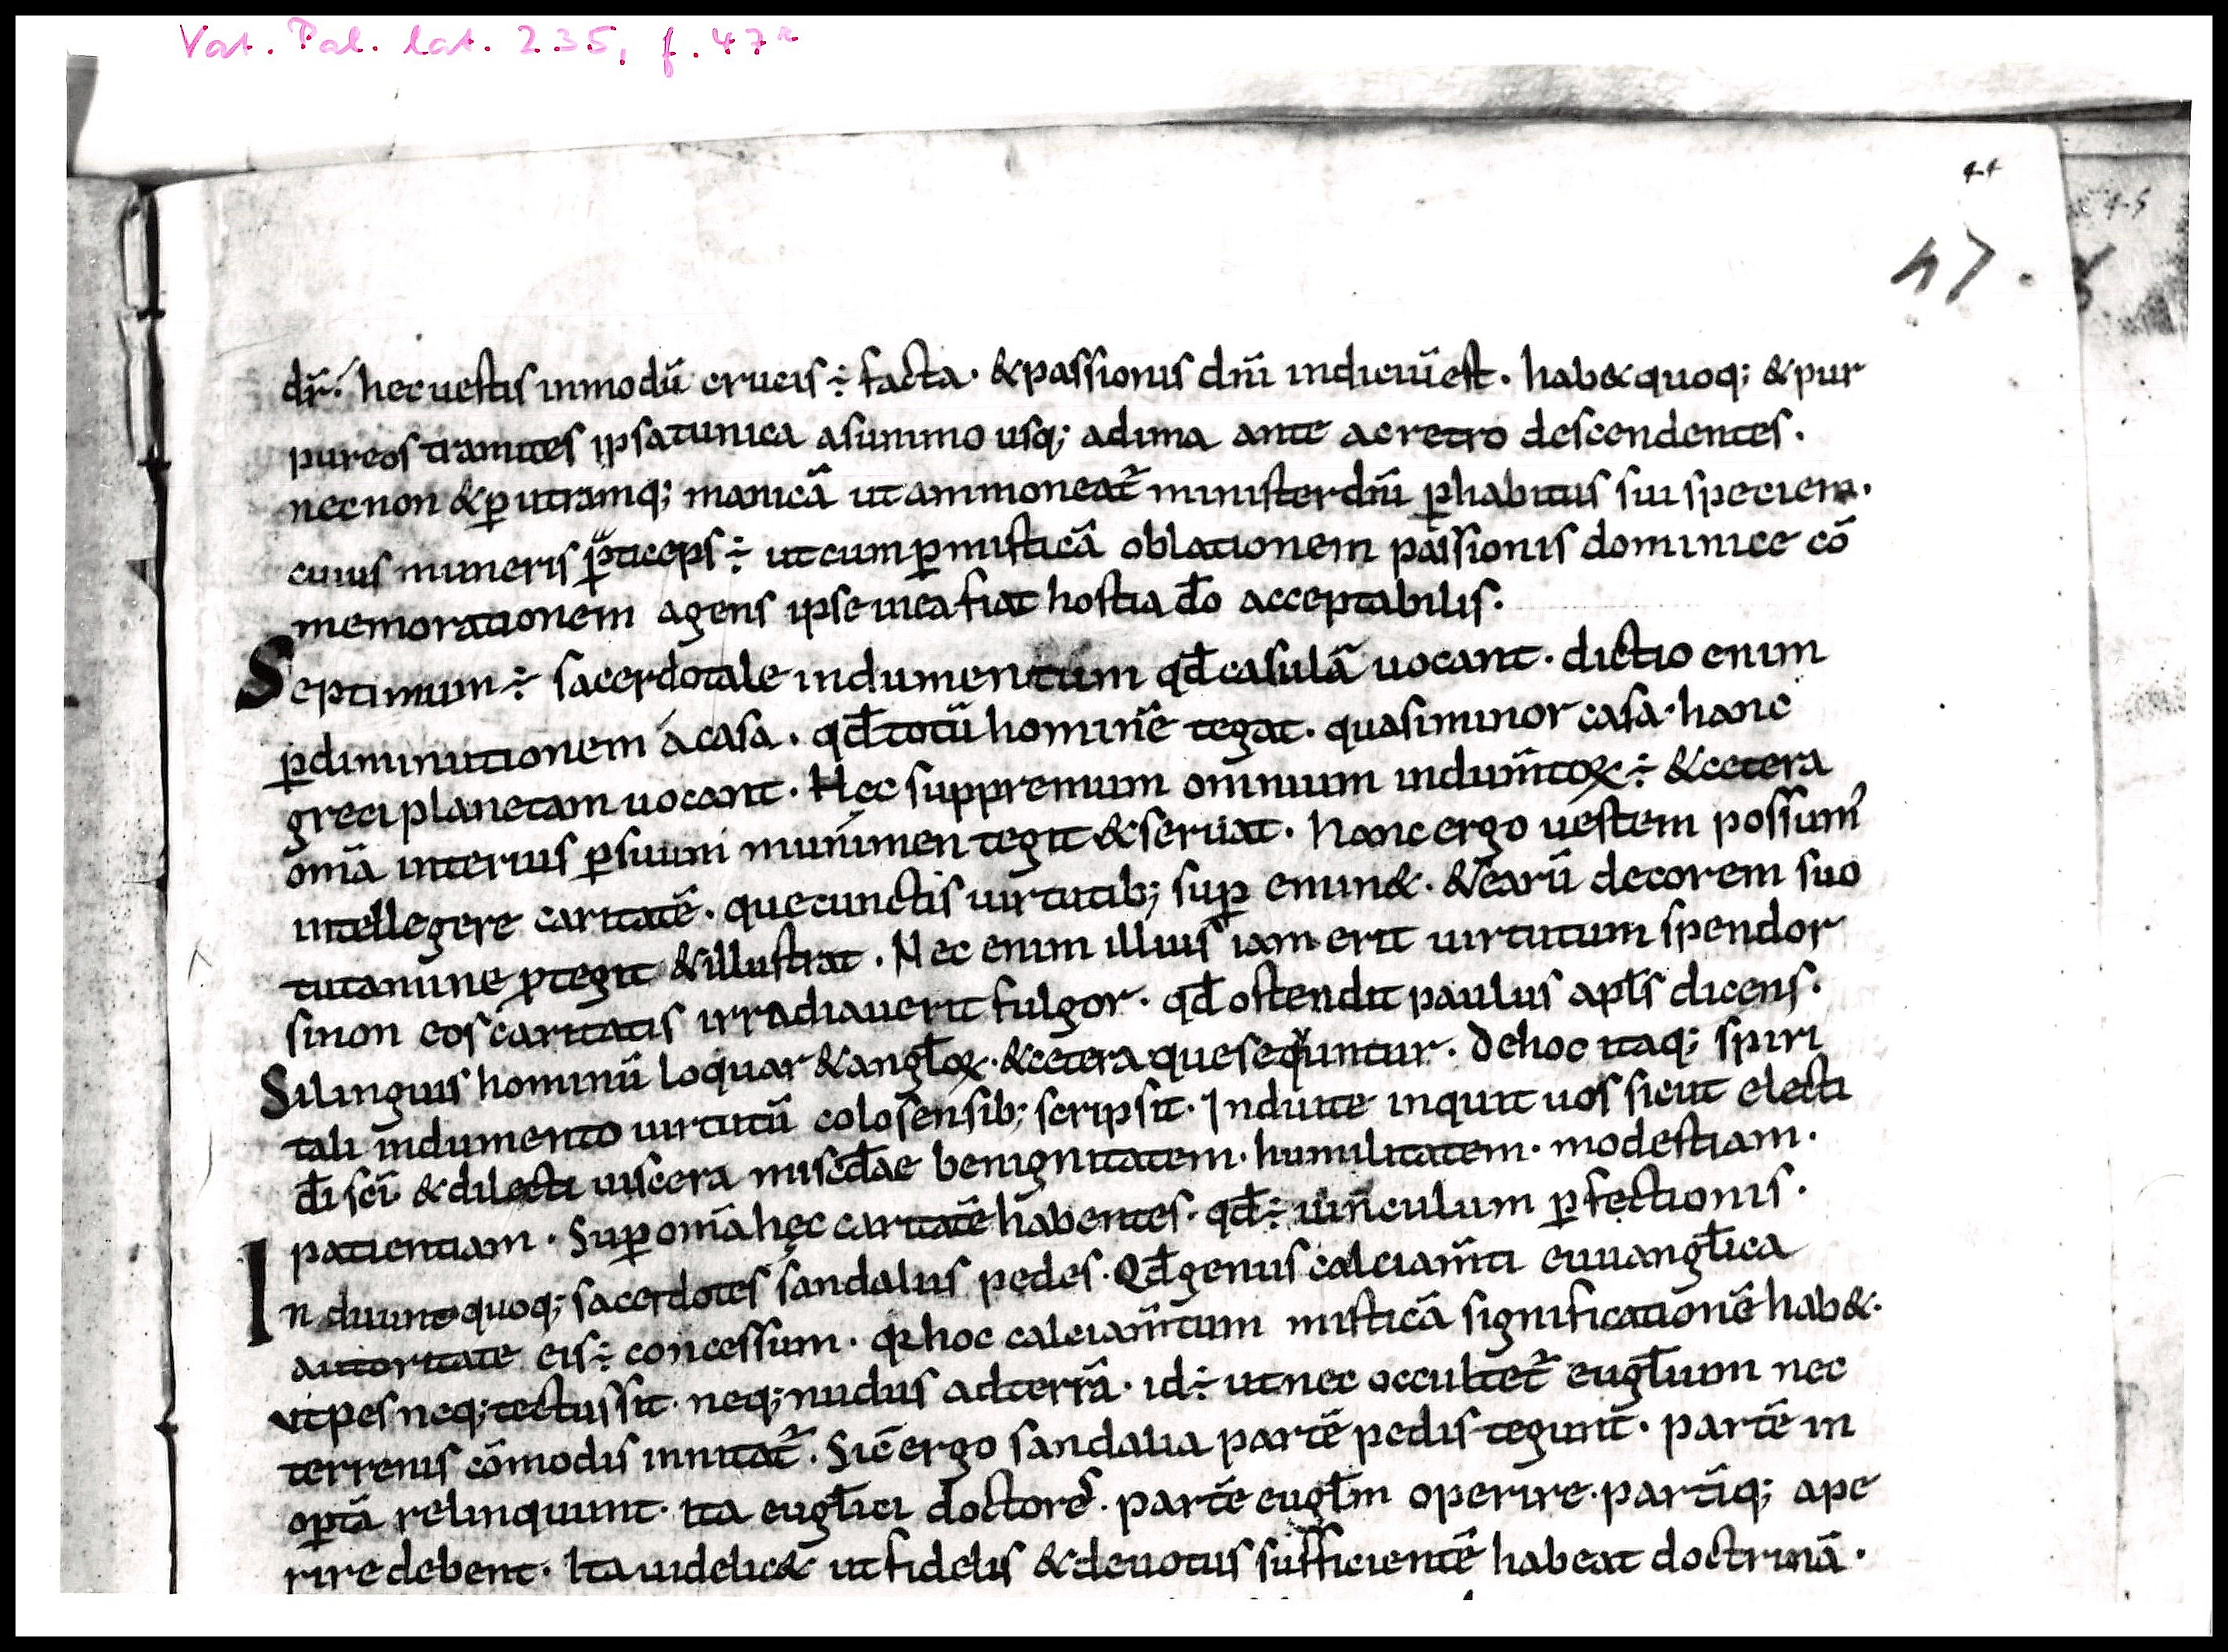 Vat. Pal. lat. 235, f. 47r
44
47.
dr̄. hec uestis inmodū crucis ÷ facta · & passionis dn̄i indiciū est · hab& quoq; & pur
pureos tramites ipsa tunica asummo usq; adima ante ac retro descendentes ·
necnon & ꝑ utramq; manicā ut ammoneat̄ minister dn̄i ꝑ habitus sui speciem ·
cuius muneris ꝑticeps ÷ ut cum ꝑ misticā oblationem passionis dominice cō
memorationem agens ipse in ea fiat hostia dō acceptabilis ·
Septimum ÷ sacerdotale indumentum qđ casulā uocant · dictio enim
ꝑ diminutionem á casa · qđ totū hominē tegat · quasi minor casa · hanc
greci planetam uocant · Hęc suppremum omnium indum̄toꝝ ÷ & cetera
om̄a interius ꝑ suum munimen tegit & seruat · hanc ergo uestem possum'
intellegere caritatē · que cunctis uirtutib; suꝑ emin& · & earū decorem suo
tutamine ꝓtegit & illustrat · Nec enim illius iam erit uirtutum spendor
sinon eos caritatis irradiauerit fulgor · qđ ostendit paulus apl̄s dicens ·
Silinguis hominū loquar & angl̄oꝝ · & cetera que sequntur · dehoc itaq; spiri
tali indumento uirtutū colosensib; scripsit · Induite inquit uos sicut electi
dī sc̄i & dilecti uiscera misc̄dae benignitatem · humilitatem · modestiam ·
patientiam · Suꝑ om̄a hęc caritatē habentes · qđ ÷ uinculum ꝑfectionis ·
Induunt quoq; sacerdotes sandaliis pedes · Qđ genus calciam̄ti euuangl̄ica
autoritate eis ÷ concessum · q̄ hoc calciam̄tum misticā significationē hab& ·
ut pes neq; tectus sit · neq; nudus adterrā · id ÷ ut nec occultet̄ eugl̄ium nec
terrenis cōmodis innitat̄ · Sic̄ ergo sandalia partē pedis tegunt · partē in
oꝑtā relinquunt · ita eugl̄ici doctores · partē eugl̄ii operire · partīq; ape
rire debent · Ita uidelic& ut fidelis & deuotus sufficientē habeat doctrinā ·